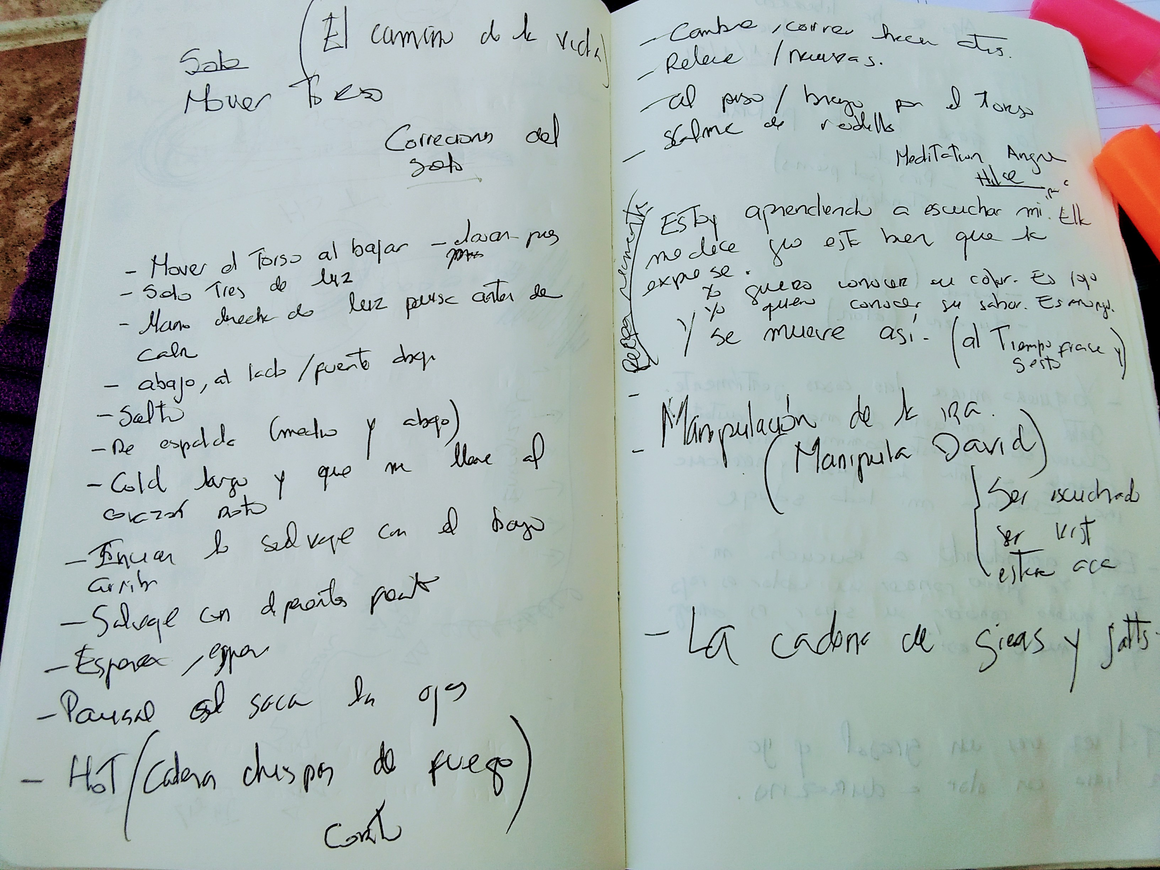 Solo
(El camino de la vida)
Mover Torso
Correciones del
solo
- Mover el Torso al bajar -
- Solo Tres de luz
- Mano derecha de luz pausa antes de
caer
- abajo, al lado / puente
- Salto
- De espalda (medio y abajo)
- Cold largo y que me lleve al
corazón roto
- Iniciar lo salvaje con el brazo
arriba
- Salvaje con
- Esperar, esperar
- Pausa al saca los ojos
- HOT (Cadera chispas de fuego)
corto
- Cambre, correr hacia atrás.
- Releve / nuevas.
- al piso / brazo por el Torso
- de rodillas
Meditation Anger
Respiramiento
Estoy aprendiendo a escuchar mi ira. Ella
me dice que está bien que la
exprese.
Yo quiero conocer su color. Es rojo
Yo quiero conocer su sabor. Es amargo.
Y se mueve así. (al Tiempo frase y
gesto)
- Manipulación de la ira.
- (Manipula David)
Ser escuchado
ser visto
estar acá
- La cadena de giros y saltos.